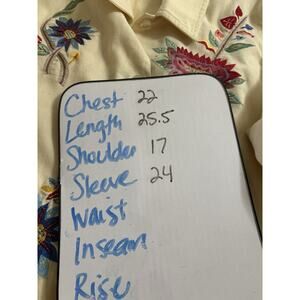 Chest 22
Length 25.5
Shoulder 17
Sleeve 24
Waist
Inseam
Rise